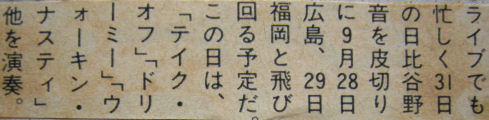 ライブでも
忙しく31日
の日比谷野
音を皮切り
に9月28日
広島、29日
福岡と飛び
回る予定だ。
この日は、
「テイク・
オフ」「ドリ
ーミー」「ウ
ォーキン・
ナスティ」
他を演奏。